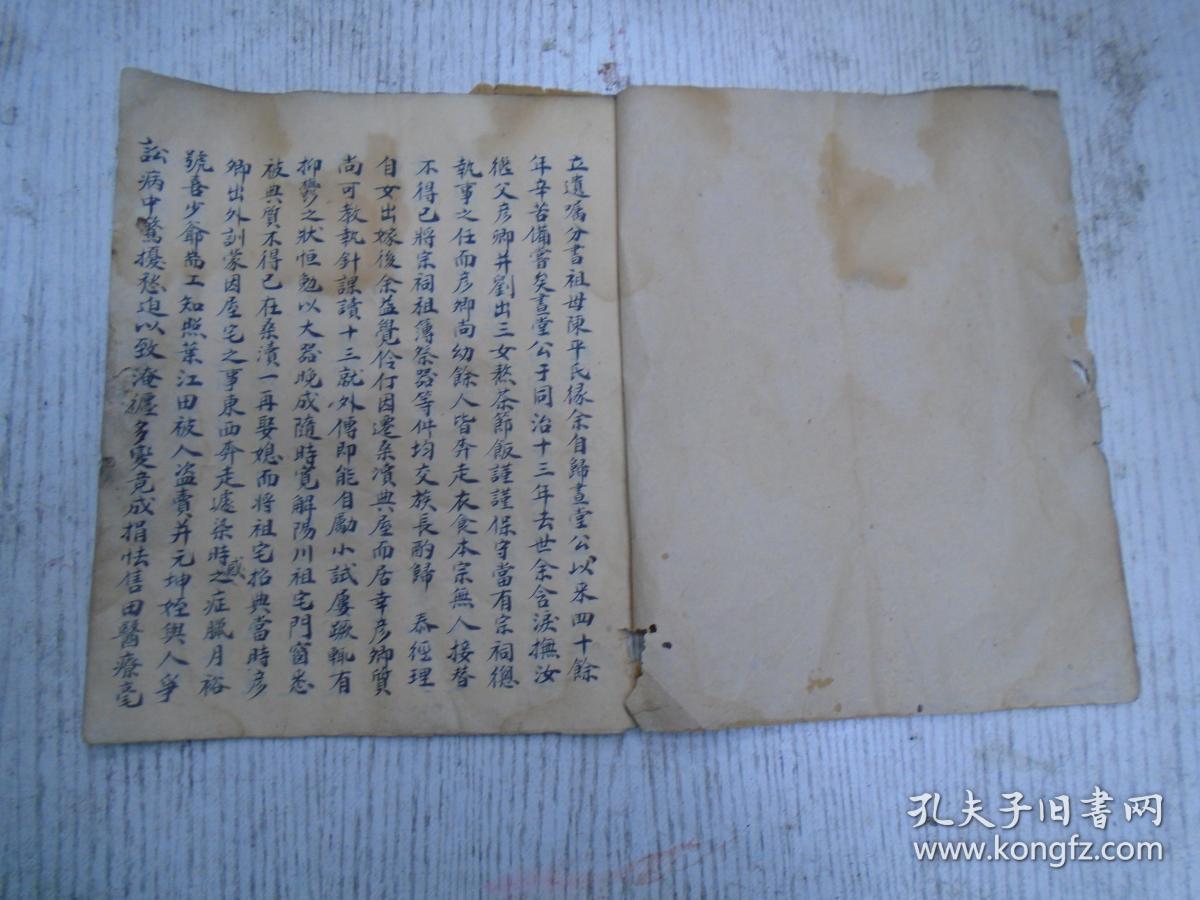 立遺嘱分書祖母陳平氏緣余自歸晝堂公以来四十餘
年辛苦備嘗矣晝堂公于同治十三年去世余含淚撫汝
繼父彦卿并劉出三女熬茶節飯謹謹保守當有宗祠總
執事之任而彦卿尚幼餘人皆奔走衣食本宗無人接替
不得已將宗祠祖簿祭器等件均交族長酌歸 泰經理
自女出嫁後余益覺伶仃因遷桑濆典屋而居幸彦卿質
尚可教執針課讀十三就外傅即能自勵小試屢蹶輒有
抑鬱之狀恒勉以大器晚成隨時寬解陽川祖宅門窗悉
被典質不得已在桑濆一再娶媳而將祖宅招典當時彦
卿出外訓蒙因屋宅之事東西奔走遽染時感之症臘月裕
號喜少爺 工知照葉江田被人盗賣并元坤姪與人爭
訟病中驚擾愁迫以致淹纏多變竟成損怯售田醫療毫
孔夫子旧書网
www.kongfz.com